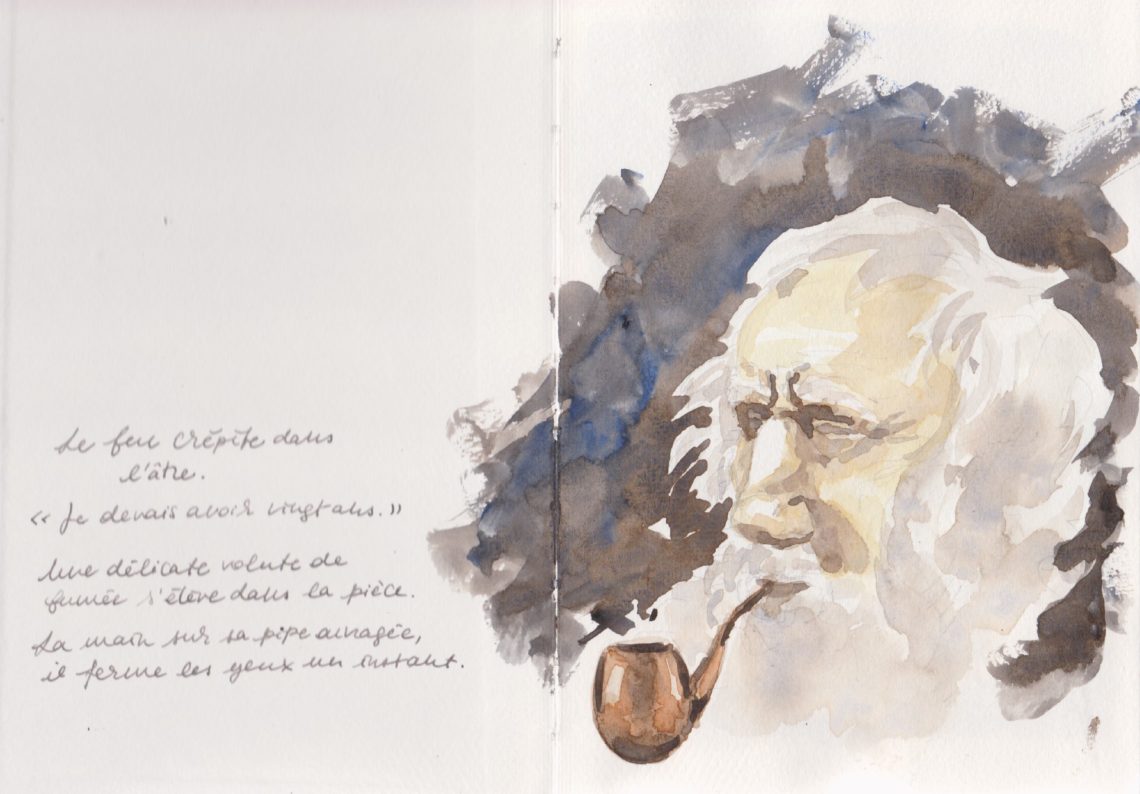 Le feu crépite dans
l'âtre.
« Je devais avoir vingt ans. »
Une délicate volute de
fumée s'élève dans la pièce.
La main sur sa pipe ouvragée,
il ferme les yeux un instant.